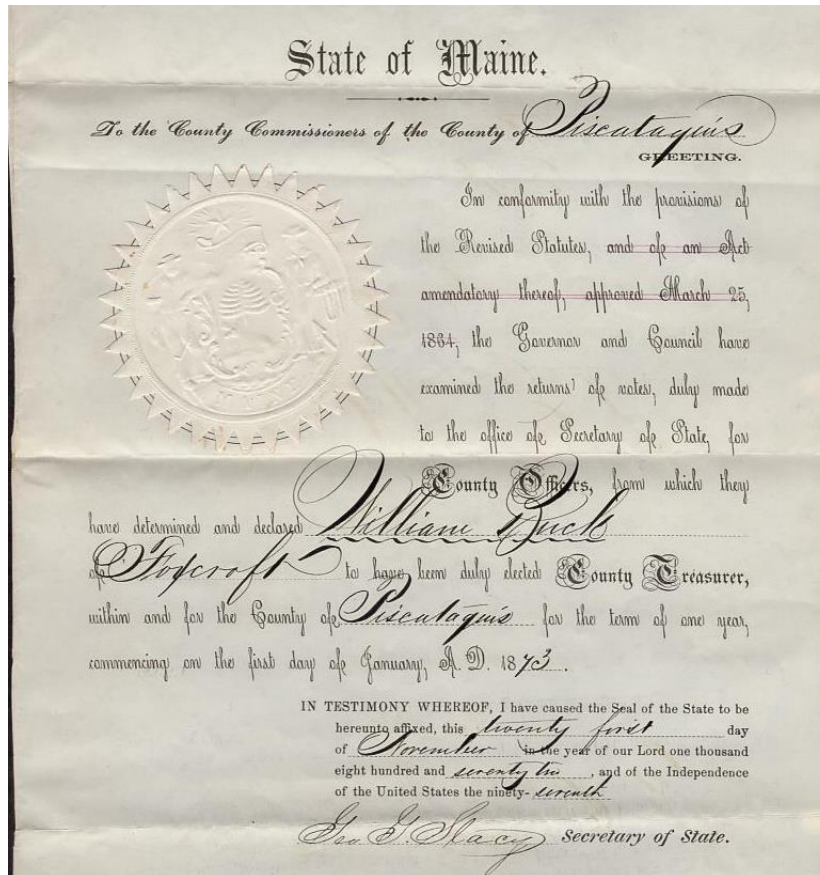 State of Maine.
To the County Commissioners of the County of Piscataquis
GREETING.
In conformity with the provisions of
the Revised Statutes, and of an Act
amendatory thereof, approved March 25,
1864, the Governor and Council have
examined the returns of votes, duly made
to the office of Secretary of State, for
County Officers, from which they
have determined and declared William Buck
of Foxcroft to have been duly elected County Treasurer,
within and for the County of Piscataquis for the term of one year,
commencing on the first day of January, A. D. 1873.
IN TESTIMONY WHEREOF, I have caused the Seal of the State to be
hereunto affixed, this twenty first day
of November in the year of our Lord one thousand
eight hundred and seventy two, and of the Independence
of the United States the ninety-seventh
Geo. G. Stacy Secretary of State.